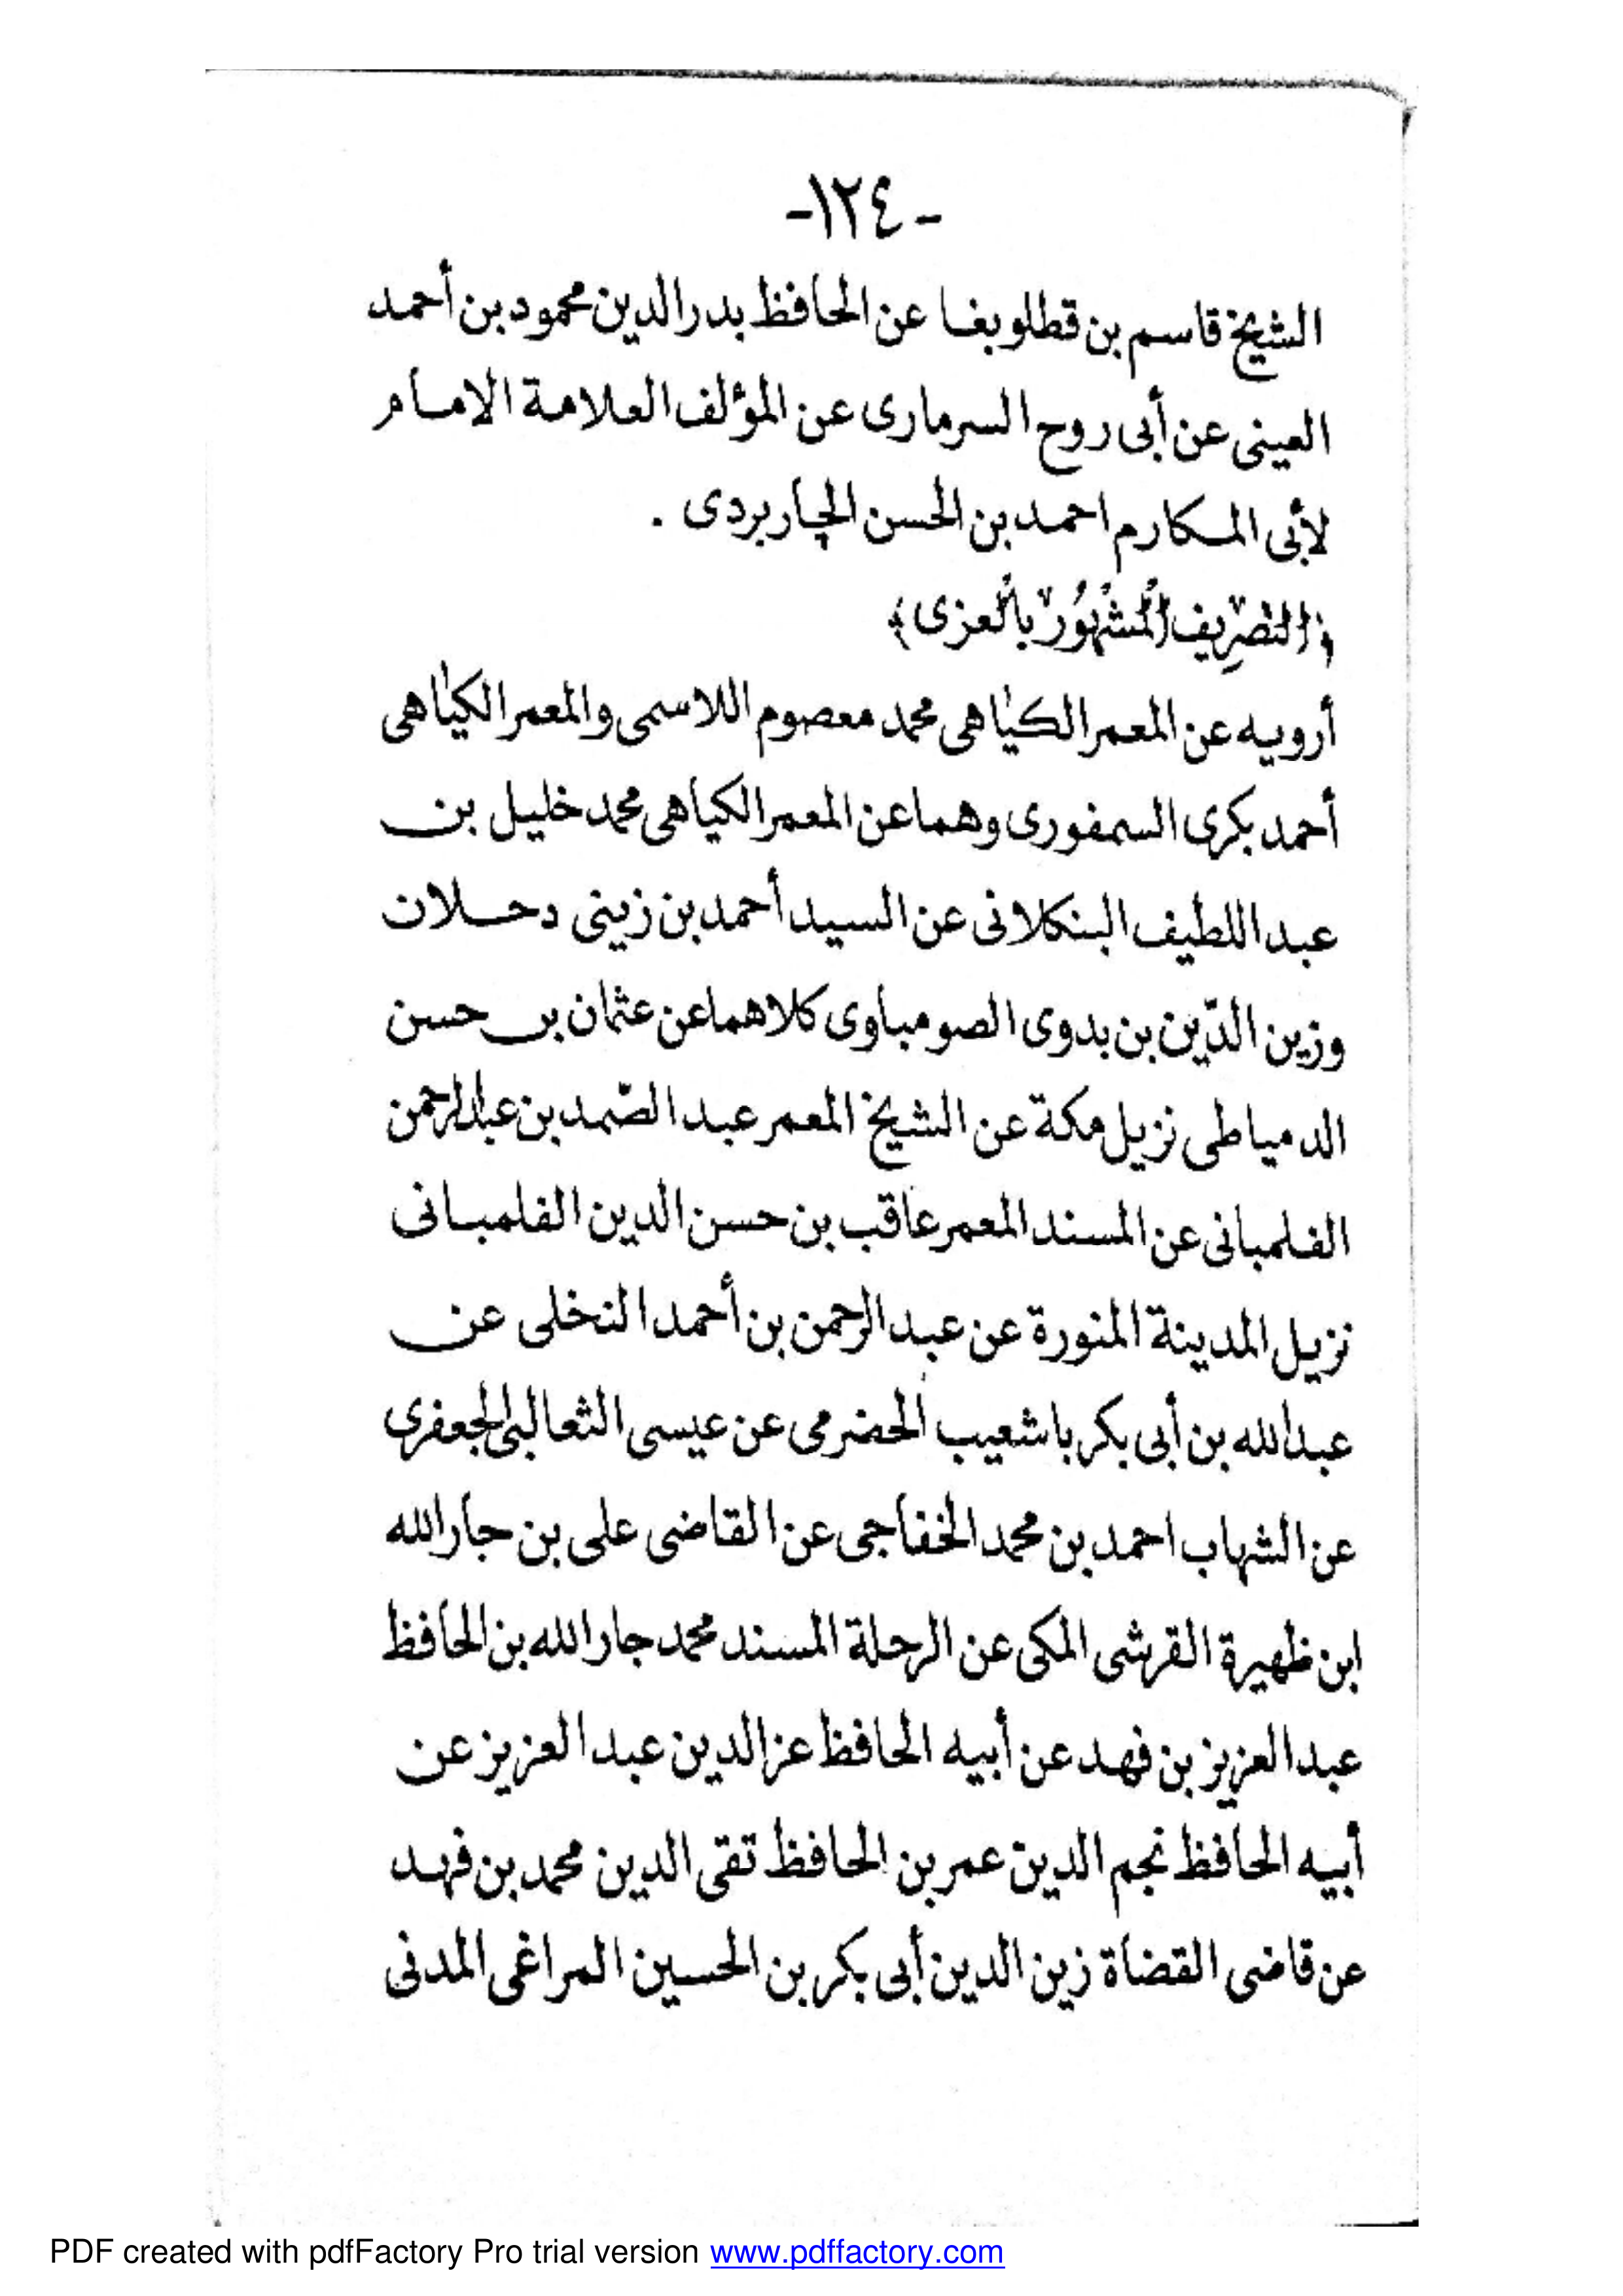 -١٢٤-
الشيخ قاسم بن قطلوبغا عن الحافظ بدر الدين محمود بن أحمد
العينى عن أبى روح السرمارى عن المؤلف العلامة الامام
لأبى المكارم احمد بن الحسن الچاربردى .
﴿التصريف المشهور بالعزى﴾
أرويه عن المعمر الكياهى محمد معصوم اللاسمى والمعمر الكياهى
أحمد بكرى السمفورى وهما عن المعمر الكياهى محمد خليل بن
عبد اللطيف البنكلانى عن السيد أحمد بن زينى دحلان
وزين الدّين بن بدوى الصومباوى كلاهما عن عثمان بن حسن
الدمياطى نزيل مكة عن الشيخ المعمر عبد الصّمد بن عبد الرحمن
الفلمبانى عن المسند المعمر عاقب بن حسن الدين الفلمبانى
نزيل المدينة المنورة عن عبد الرحمن بن أحمد النخلى عن
عبد الله بن أبى بكر باشعيب الحضرمى عن عيسى الثعالبى الجعفرى
عن الشهاب احمد بن محمد الخفاجى عن القاضى على بن جار الله
ابن ظهيرة القرشى المكى عن الرحلة المسند محمد جار الله بن الحافظ
عبد العزيز بن فهد عن أبيه الحافظ عز الدين عبد العزيز عن
أبيه الحافظ نجم الدين عمر بن الحافظ تقى الدين محمد بن فهد
عن قاضى القضاة زين الدين أبى بكر بن الحسين المراغى المدنى
PDF created with pdfFactory Pro trial version www.pdffactory.com